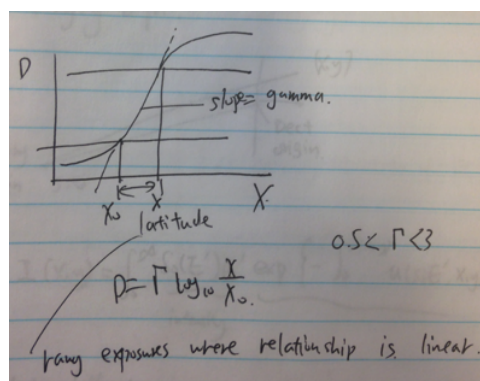 D
slope= gamma.
X₀ X X
latitude
0.5< Γ <3
D= Γ log₁₀ X/X₀.
rang exposures where relationship is linear.